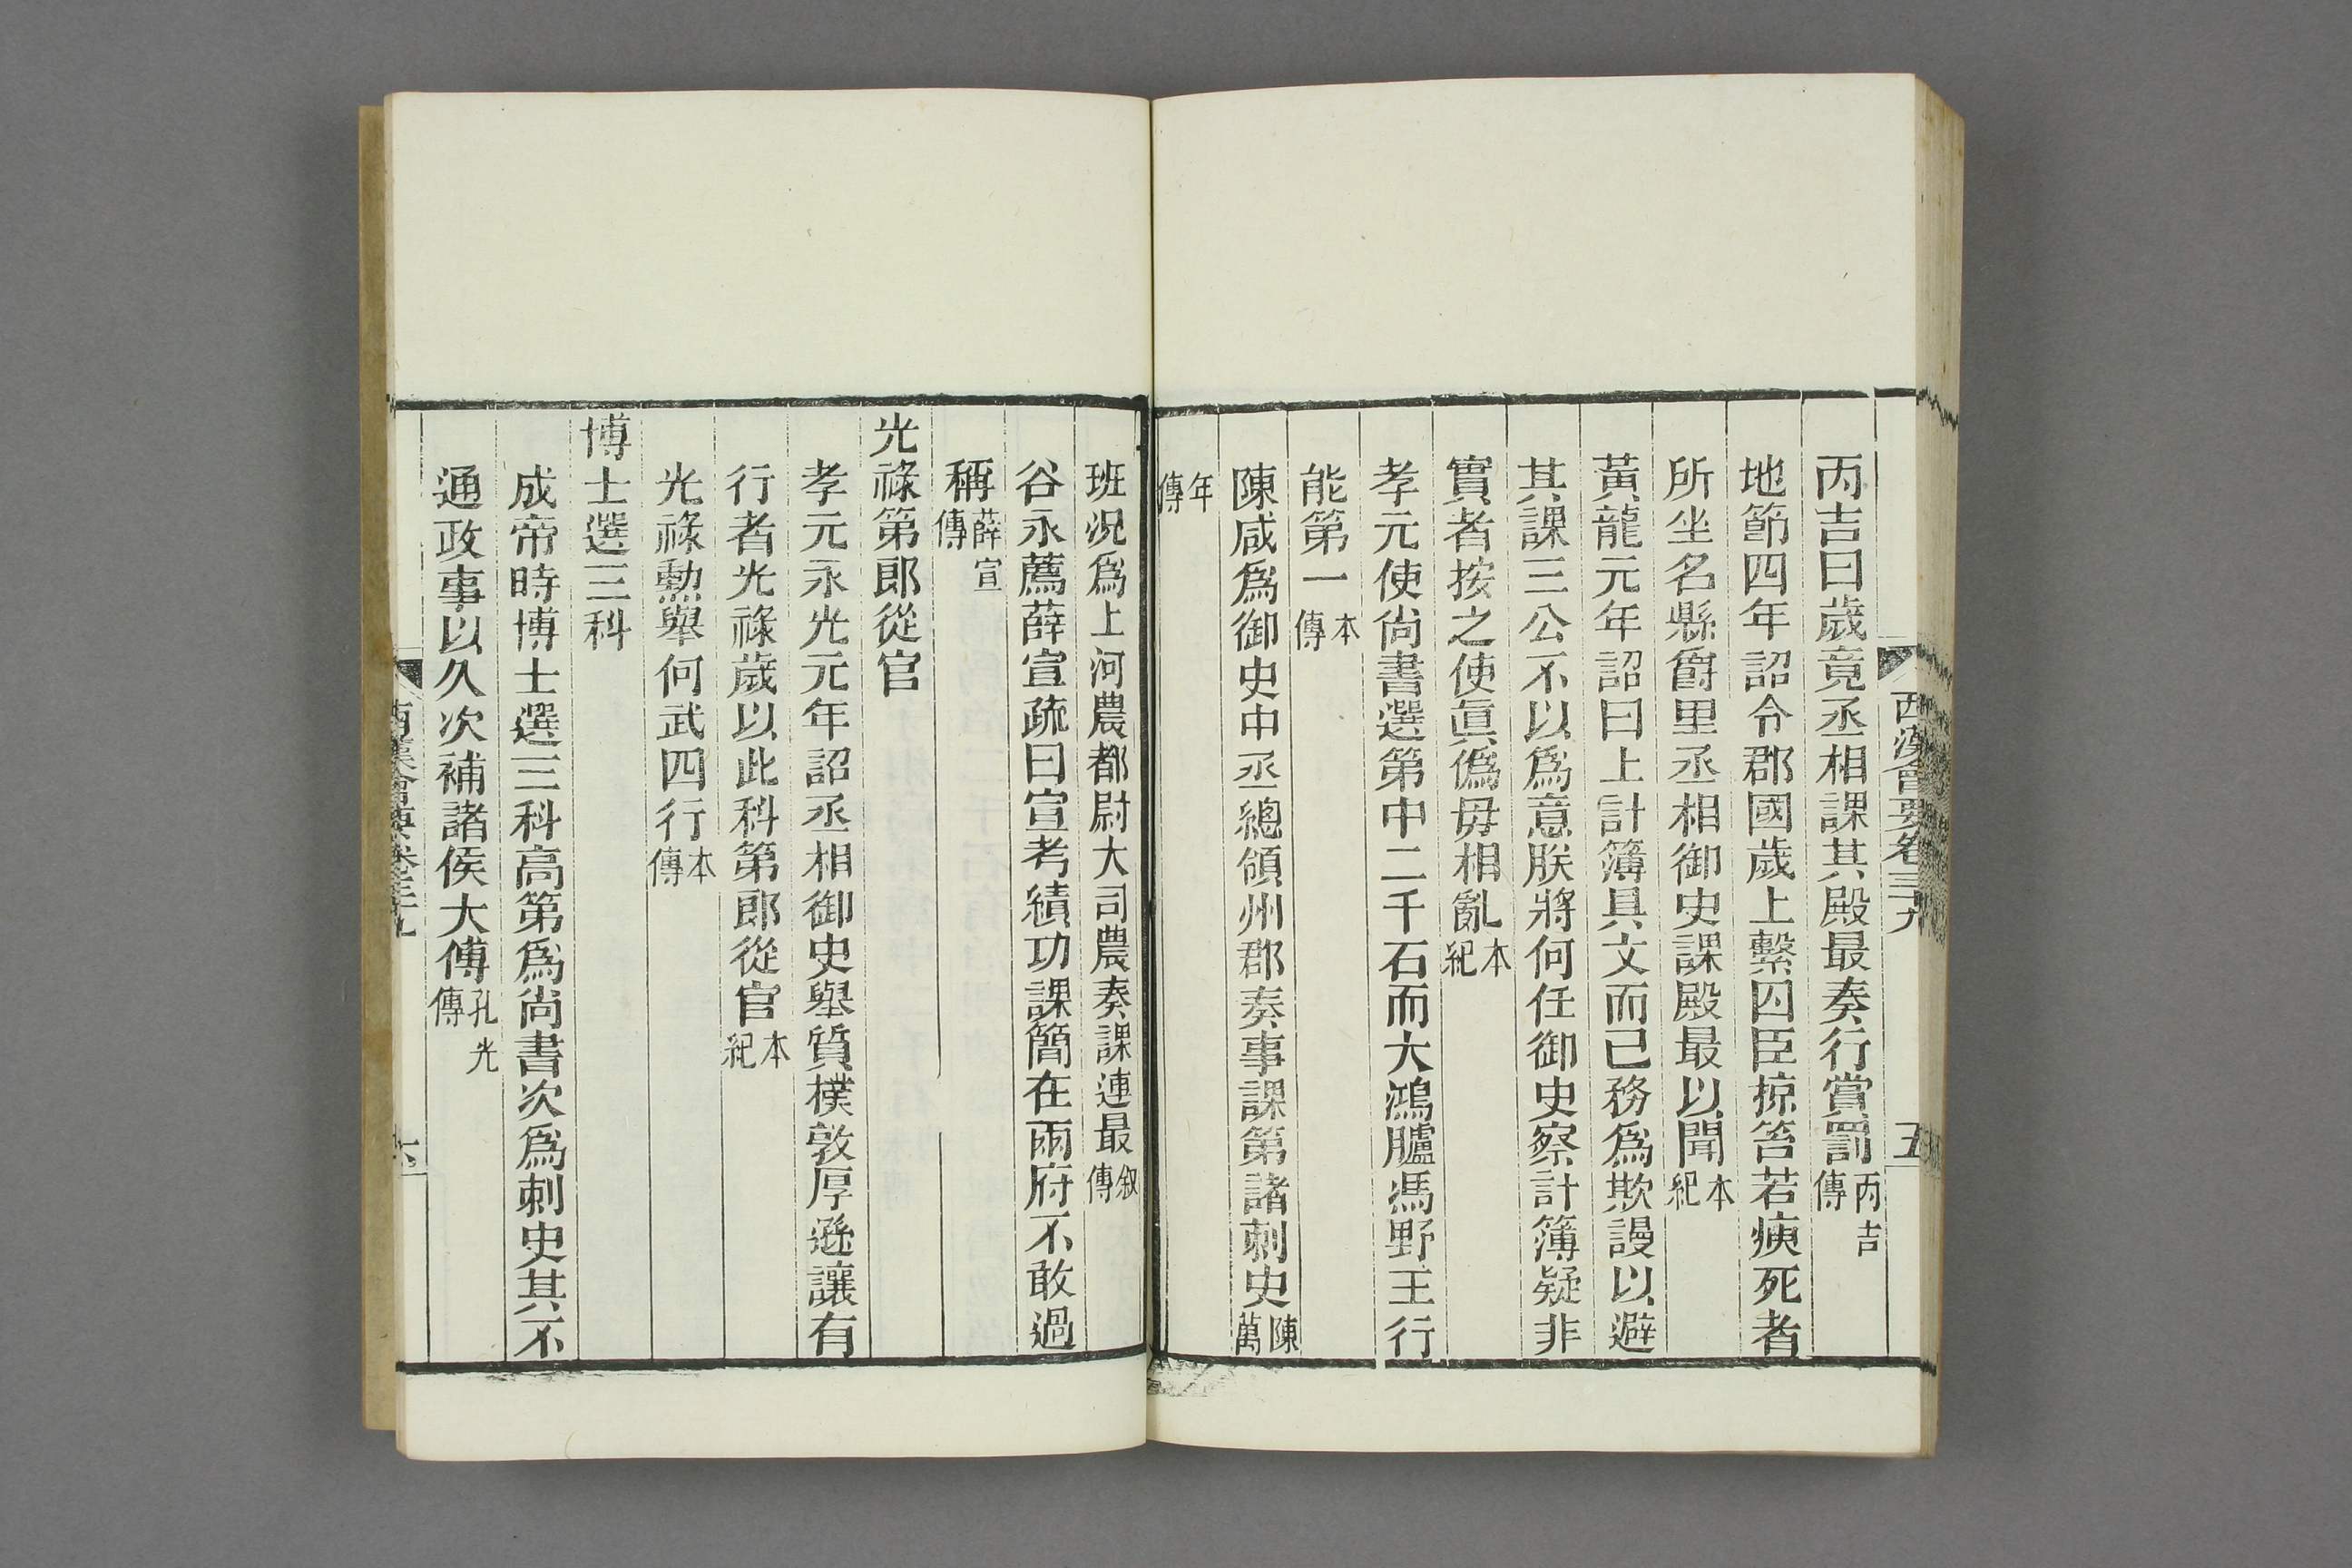 西漢會要卷三十九 五
丙吉曰歲竟丞相課其殿最奏行賞罰丙吉傳
地節四年詔令郡國歲上繫囚臣掠笞若瘐死者
所坐名縣爵里丞相御史課殿最以聞本紀
黃龍元年詔曰上計簿具文而已務爲欺謾以避
其課三公不以爲意朕將何任御史察計簿疑非
實者按之使眞僞毋相亂本紀
孝元使尚書選第中二千石而大鴻臚馮野王行
能第一本傳
陳咸爲御史中丞總領州郡奏事課第諸刺史陳萬
年傳
班況爲上河農都尉大司農奏課連最叙傳
谷永薦薛宣疏曰宣考績功課簡在兩府不敢過
稱薛宣傳
光祿第郎從官
孝元永光元年詔丞相御史舉質樸敦厚遜讓有
行者光祿歲以此科第郎從官本紀
光祿勳舉何武四行本傳
博士選三科
成帝時博士選三科高第爲尚書次爲刺史其不
通政事以久次補諸侯大傅孔光傳
西漢會要卷三十九 六